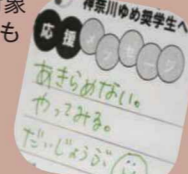 象
も
神奈川ゆめ奨学生へ
応援メッセージ
あきらめない。
やってみる。
だいじょうぶ